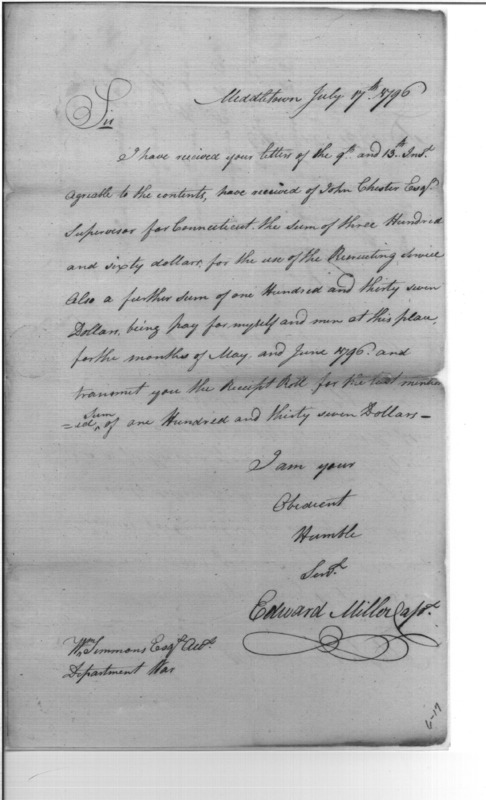 Meddletown July 17th 1796
Sir
I have recieved your letters of the 9th and 13th Inst.
agreable to the contents, have received of John Chester Esqr.
Supervisor for Connecticut the sum of three Hundred
and sixty dollars, for the use of the Recruiting Service
Also a further sum of one Hundred and thirty seven
Dollars, being pay for myself and men at this place,
for the months of May, and June 1796. and
transmit you the Receipt Roll for the last mention
=ed Sum of one Hundred and thirty seven Dollars—
I am your
Obedient
Humble
Servt.
Edward Miller Capt.
Wm. Simmons Esqr. Acct.
Department War
6-17